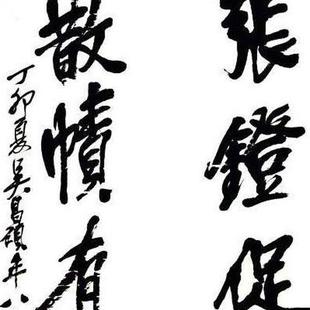 張鐙促
散帙有
丁卯夏吳昌碩年八